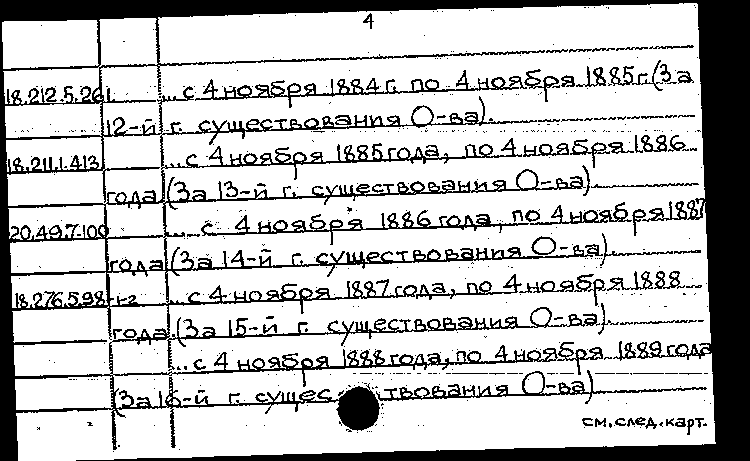 4
18.212.5.261. ... с 4 ноября 1884 г. по 4 ноября 1885 г. (За
12-й г. существования О-ва).
18.211.1.413. ... с 4 ноября 1885 года, по 4 ноября 1886
года (За 13-й г. существования О-ва).
20.49.7.100 ... с 4 ноября 1886 года, по 4 ноября 1887
года (За 14-й г. существования О-ва).
18.276.5.98-1-2 ... с 4 ноября 1887 года, по 4 ноября 1888
года. (За 15-й г. существования О-ва).
... с 4 ноября 1888 года, по 4 ноября 1889 года
(За 16-й г. существования О-ва)
см. след. карт.